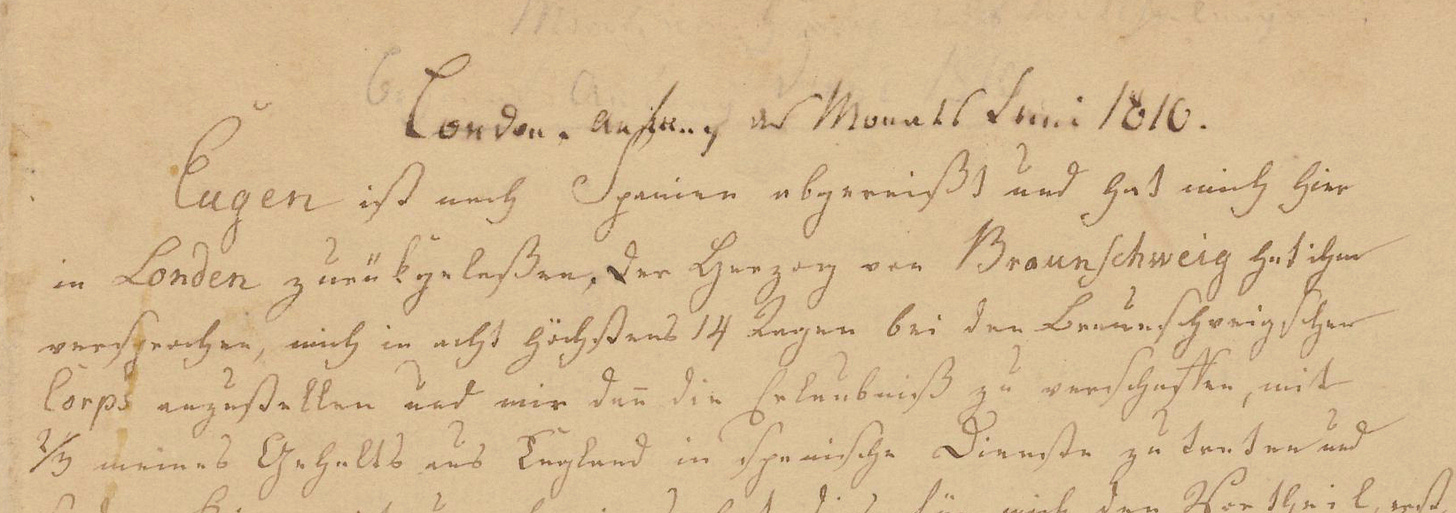 London. Anfang des Monats Juni 1810.
Eugen ist nach Spanien abgereißt und hat mich hier
in London zurükgelaßen, der Herzog von Braunschweig hat ihm
versprochen, mich in acht höchstens 14 Tagen bei den Braunschweigschen
Corps anzustellen und mir dan̄ die Erlaubniß zu verschaffen, mit
2/3 meines Gehalts aus England in spanische Dienste zu treten und
für mich den Vortheil, erst